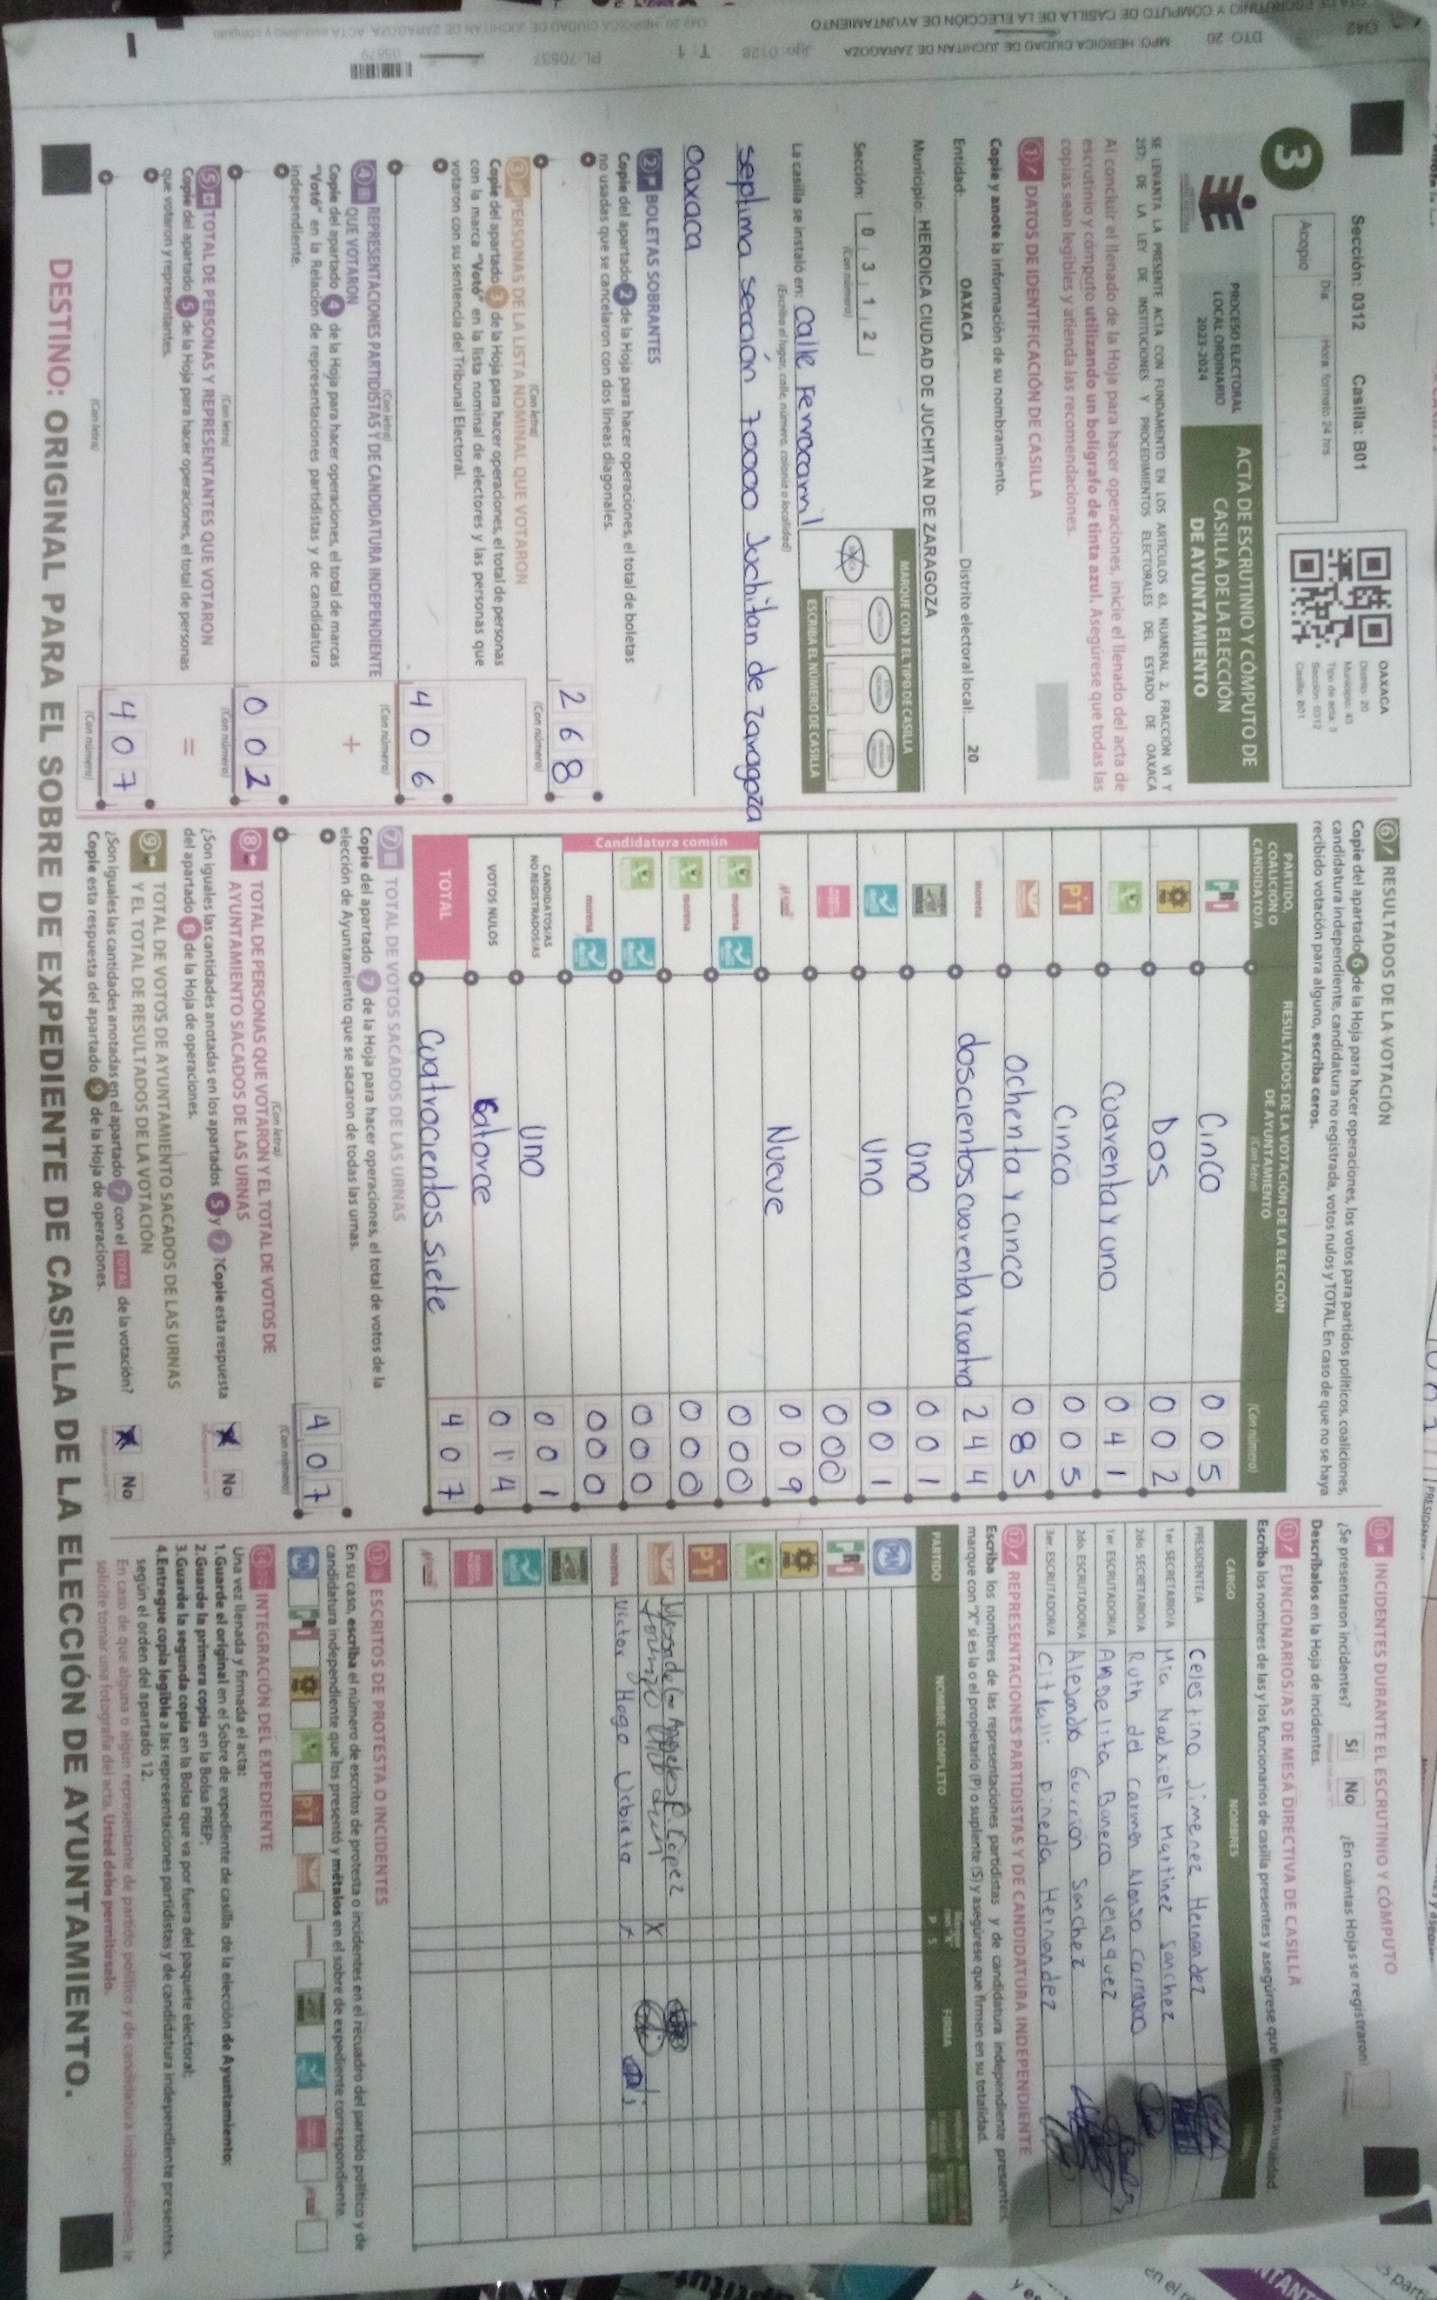 Sección: 0312 Casilla: B01
Día: Hora: formato 24 hrs
Acopio
3
OAXACA
Distrito: 20
Municipio: 43
Tipo de acta: 3
Sección: 0312
Casilla: B01
PROCESO ELECTORAL
LOCAL ORDINARIO
2023-2024
ACTA DE ESCRUTINIO Y CÓMPUTO DE
CASILLA DE LA ELECCIÓN
DE AYUNTAMIENTO
SE LEVANTA LA PRESENTE ACTA CON FUNDAMENTO EN LOS ARTÍCULOS 63, NUMERAL 2, FRACCIÓN VI Y
237; DE LA LEY DE INSTITUCIONES Y PROCEDIMIENTOS ELECTORALES DEL ESTADO DE OAXACA
Al concluir el llenado de la Hoja para hacer operaciones, inicie el llenado del acta de
escrutinio y cómputo utilizando un bolígrafo de tinta azul. Asegúrese que todas las
copias sean legibles y atienda las recomendaciones.
1 DATOS DE IDENTIFICACIÓN DE CASILLA
Copie y anote la información de su nombramiento.
Entidad: OAXACA Distrito electoral local: 20
Municipio: HEROICA CIUDAD DE JUCHITAN DE ZARAGOZA
Sección: 0 3 1 2
(Con número)
MARQUE CON X EL TIPO DE CASILLA
ESCRIBA EL NÚMERO DE CASILLA
La casilla se instaló en: Calle Ferrocarril
(Escriba el lugar, calle, número, colonia o localidad)
septima sección 70000 Juchitan de Zaragoza
Oaxaca
2 BOLETAS SOBRANTES
Copie del apartado 2 de la Hoja para hacer operaciones, el total de boletas
no usadas que se cancelaron con dos líneas diagonales.
268
(Con letra) (Con número)
3 PERSONAS DE LA LISTA NOMINAL QUE VOTARON
Copie del apartado 3 de la Hoja para hacer operaciones, el total de personas
con la marca "Votó" en la lista nominal de electores y las personas que
votaron con su sentencia del Tribunal Electoral.
406
(Con letra) (Con número)
4 REPRESENTACIONES PARTIDISTAS Y DE CANDIDATURA INDEPENDIENTE
QUE VOTARON
Copie del apartado 4 de la Hoja para hacer operaciones, el total de marcas
"Votó" en la Relación de representaciones partidistas y de candidatura
independiente.
+
002
(Con letra) (Con número)
5 TOTAL DE PERSONAS Y REPRESENTANTES QUE VOTARON
Copie del apartado 5 de la Hoja para hacer operaciones, el total de personas
que votaron y representantes.
=
407
(Con letra) (Con número)
6 RESULTADOS DE LA VOTACIÓN
Copie del apartado 6 de la Hoja para hacer operaciones, los votos para partidos políticos, coaliciones,
candidatura independiente, candidatura no registrada, votos nulos y TOTAL. En caso de que no se haya
recibido votación para alguno, escriba ceros.
PARTIDO, COALICIÓN O CANDIDATO/A
RESULTADOS DE LA VOTACIÓN DE LA ELECCIÓN
DE AYUNTAMIENTO
(Con letra) (Con número)
PRI Cinco 005
PRD Dos 002
Cuarenta y uno 041
PT Cinco 005
Ochenta y cinco 085
morena doscientos cuarenta y cuatro 244
Uno 001
Uno 001
000
Nueve 009
Candidatura común
morena 000
morena 000
000
morena 000
CANDIDATOS/AS NO REGISTRADOS/AS Uno 001
VOTOS NULOS Catorce 014
TOTAL Cuatrocientos siete 407
7 TOTAL DE VOTOS SACADOS DE LAS URNAS
Copie del apartado 7 de la Hoja para hacer operaciones, el total de votos de la
elección de Ayuntamiento que se sacaron de todas las urnas.
407
(Con letra) (Con número)
8 TOTAL DE PERSONAS QUE VOTARON Y EL TOTAL DE VOTOS DE
AYUNTAMIENTO SACADOS DE LAS URNAS
¿Son iguales las cantidades anotadas en los apartados 5 y 7 ? Copie esta respuesta
del apartado 8 de la Hoja de operaciones.
No
9 TOTAL DE VOTOS DE AYUNTAMIENTO SACADOS DE LAS URNAS
Y EL TOTAL DE RESULTADOS DE LA VOTACIÓN
¿Son iguales las cantidades anotadas en el apartado 7 con el TOTAL de la votación?
Copie esta respuesta del apartado 9 de la Hoja de operaciones.
No
10 INCIDENTES DURANTE EL ESCRUTINIO Y CÓMPUTO
¿Se presentaron incidentes? Sí No ¿En cuántas Hojas se registraron?
Descríbalos en la Hoja de incidentes.
11 FUNCIONARIOS/AS DE MESA DIRECTIVA DE CASILLA
Escriba los nombres de las y los funcionarios de casilla presentes y asegúrese que firmen en su totalidad.
CARGO NOMBRES
PRESIDENTE/A Celestino Jimenez Hernandez
1er. SECRETARIO/A Mia Nadxieli Martinez Sanchez
2do. SECRETARIO/A Ruth del Carmen Alonso Carrasco
1er. ESCRUTADOR/A Angelita Velasquez
2do. ESCRUTADOR/A Alejandro Sanchez
3er. ESCRUTADOR/A Citlali Pineda Hernandez
12 REPRESENTACIONES PARTIDISTAS Y DE CANDIDATURA INDEPENDIENTE
Escriba los nombres de las representaciones partidistas y de candidatura independiente presentes,
marque con "X" si es la o el propietario (P) o suplente (S) y asegúrese que firmen en su totalidad.
PARTIDO NOMBRE COMPLETO P S FIRMA
PAN
PRI
PRD
PT
de los Angeles P. López X
morena Victor Hugo Urbieta X
13 ESCRITOS DE PROTESTA O INCIDENTES
En su caso, escriba el número de escritos de protesta o incidentes en el recuadro del partido político y de
candidatura independiente que los presentó y métalos en el sobre de expediente correspondiente.
14 INTEGRACIÓN DEL EXPEDIENTE
Una vez llenada y firmada el acta:
1.Guarde el original en el Sobre de expediente de casilla de la elección de Ayuntamiento;
2.Guarde la primera copia en la Bolsa PREP;
3.Guarde la segunda copia en la Bolsa que va por fuera del paquete electoral;
4.Entregue copia legible a las representaciones partidistas y de candidatura independiente presentes,
según el orden del apartado 12.
En caso de que alguna o algún representante de partido político y de candidatura independiente, le
solicite tomar una fotografía del acta, Usted debe permitírselo.
DESTINO: ORIGINAL PARA EL SOBRE DE EXPEDIENTE DE CASILLA DE LA ELECCIÓN DE AYUNTAMIENTO.
DTO 20 MPO: HEROICA CIUDAD DE JUCHITAN DE ZARAGOZA